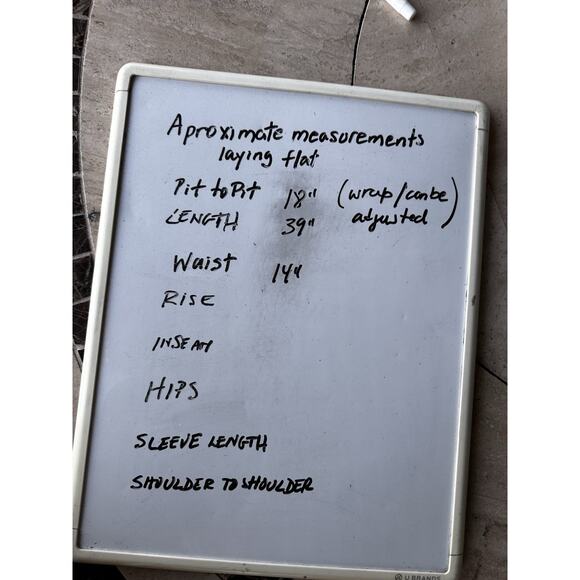 Aproximate measurements
laying flat
Pit to Pit 18" (wrap/can be
LENGTH 39" adjusted)
Waist 14"
RISE
INSEAM
HIPS
SLEEVE LENGTH
SHOULDER TO SHOULDER
U BRANDS